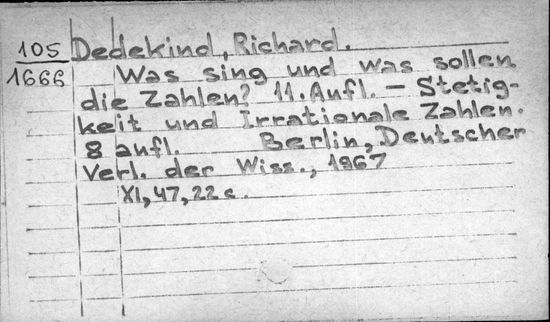 105 Dedekind, Richard.
1666 Was sing und was sollen
die Zahlen? 11. Aufl. – Stetig-
keit und Irrationale Zahlen.
8 aufl. Berlin, Deutscher
Verl. der Wiss., 1967
XI, 47, 22 c.